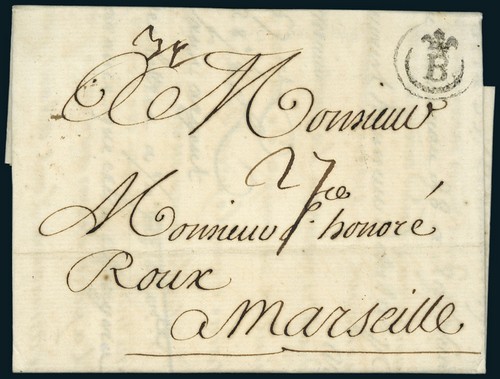 B
A Monsieur
27
Monsieur hce honoré
Roux
a Marseille